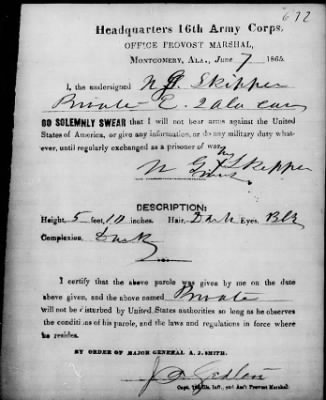 672
Headquarters 16th Army Corps,
OFFICE PROVOST MARSHAL,
MONTGOMERY, ALA., June 7 1865.
I, the undersigned N G Skipper
Private E. 2 Ala Cav
DO SOLEMNLY SWEAR that I will not bear arms against the United
States of America, or give any information, or do any military duty what-
ever, until regularly exchanged as a prisoner of war.
his
N G X Skipper
mark
DESCRIPTION:
Height, 5 feet, 10 inches. Hair, Dark Eyes, Blk
Complexion, Dark
I certify that the above parole was given by me on the date
above given, and the above named Private
will not be disturbed by United States authorities so long as he observes
the conditions of his parole, and the laws and regulations in force where
he resides.
BY ORDER OF MAJOR GENERAL A. J. SMITH.
Capt. Inft., and Ass't Provost Marshal.